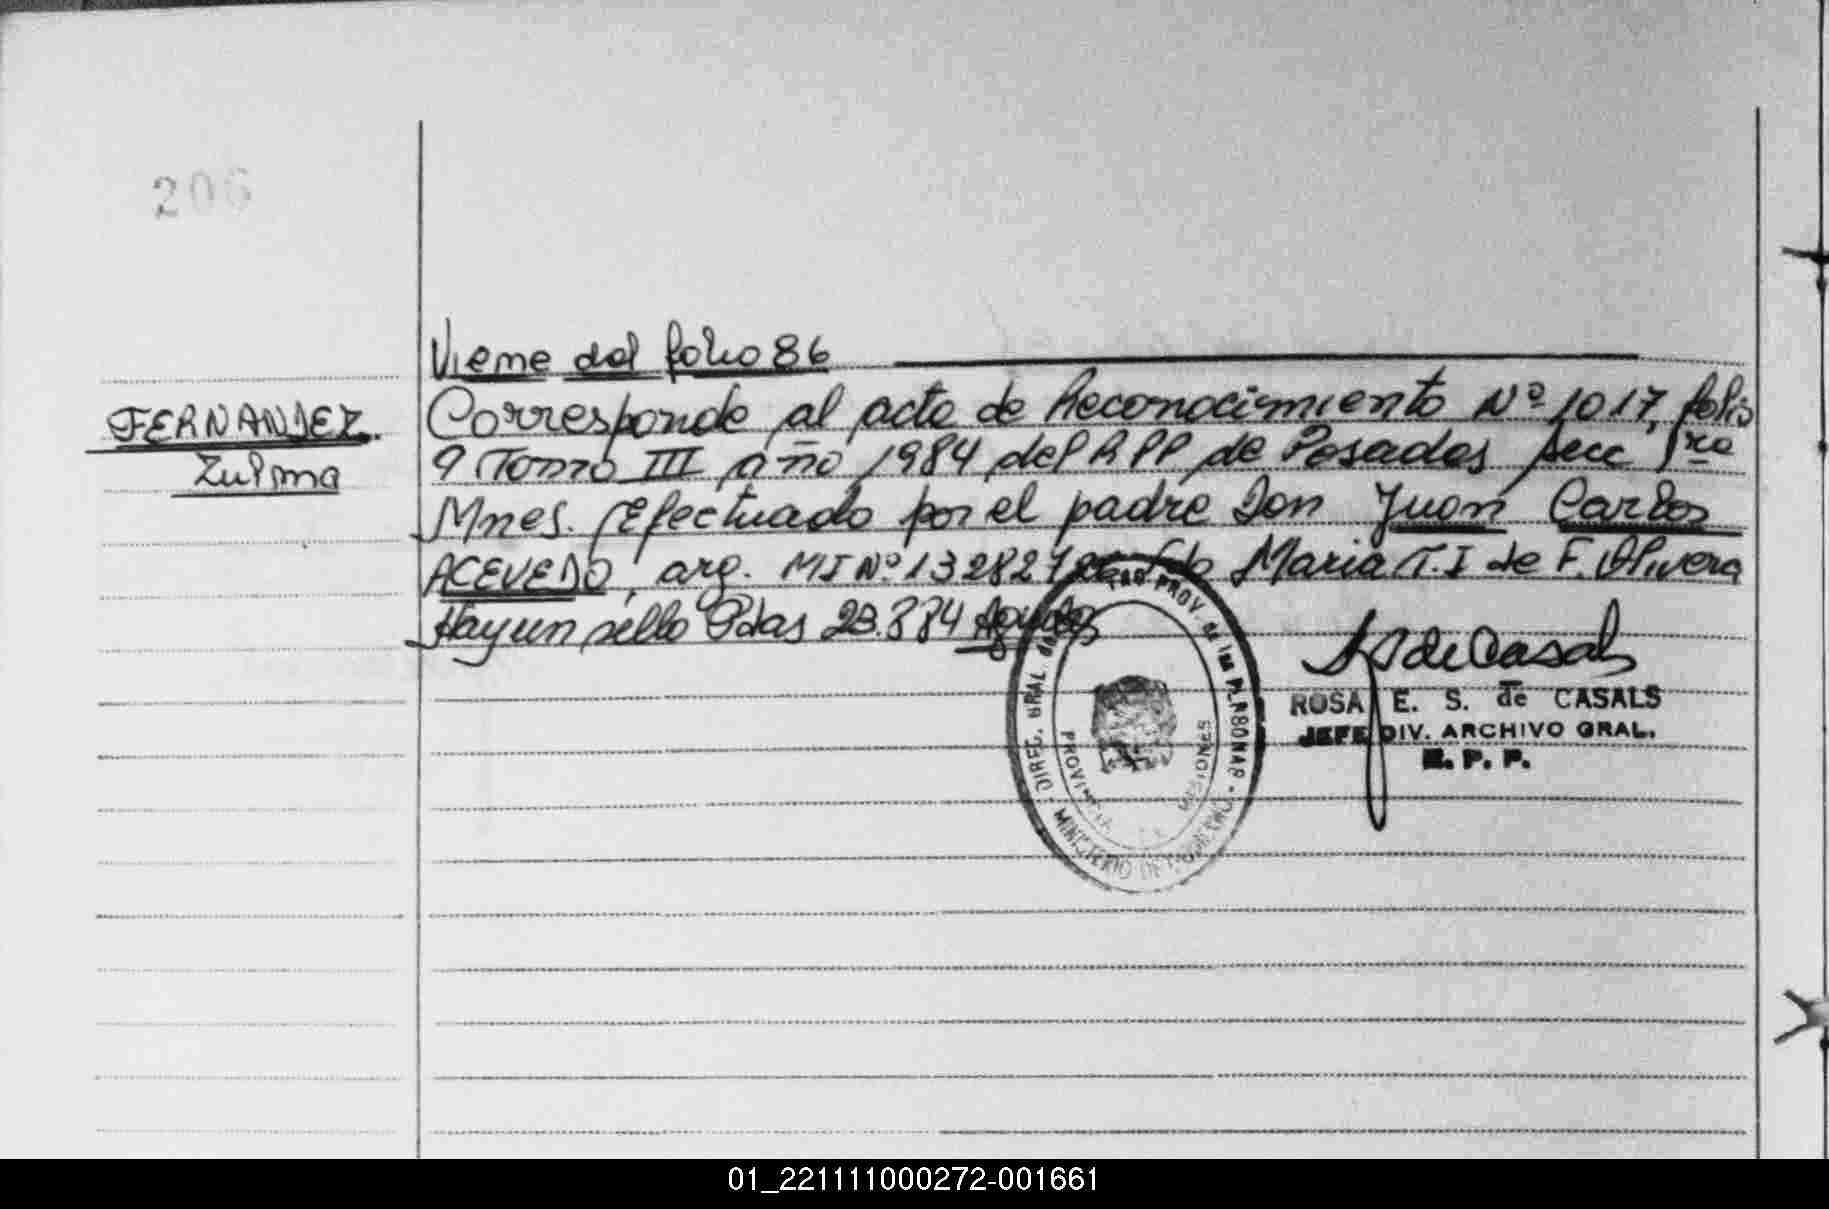 206
Viene del folio 86
FERNANDEZ.
Zulma
Corresponde al acta de Reconocimiento Nº 1017, folio
9 Tomo III año 1984 del RPP de Posadas Secc 1ra
Mnes. Efectuado por el padre Don Juan Carlos
ACEVEDO, arg. MI Nº 132827 fdo Maria T. I de F. Olivera
Hay un sello Pdas 23.8.84
DIREC. GRAL. del REG. PROV. de las PERSONAS - MINISTERIO DE GOBIERNO
PROVINCIA DE MISIONES
de Casals
ROSA E. S. de CASALS
JEFE DIV. ARCHIVO GRAL.
R. P. P.
01_221111000272-001661